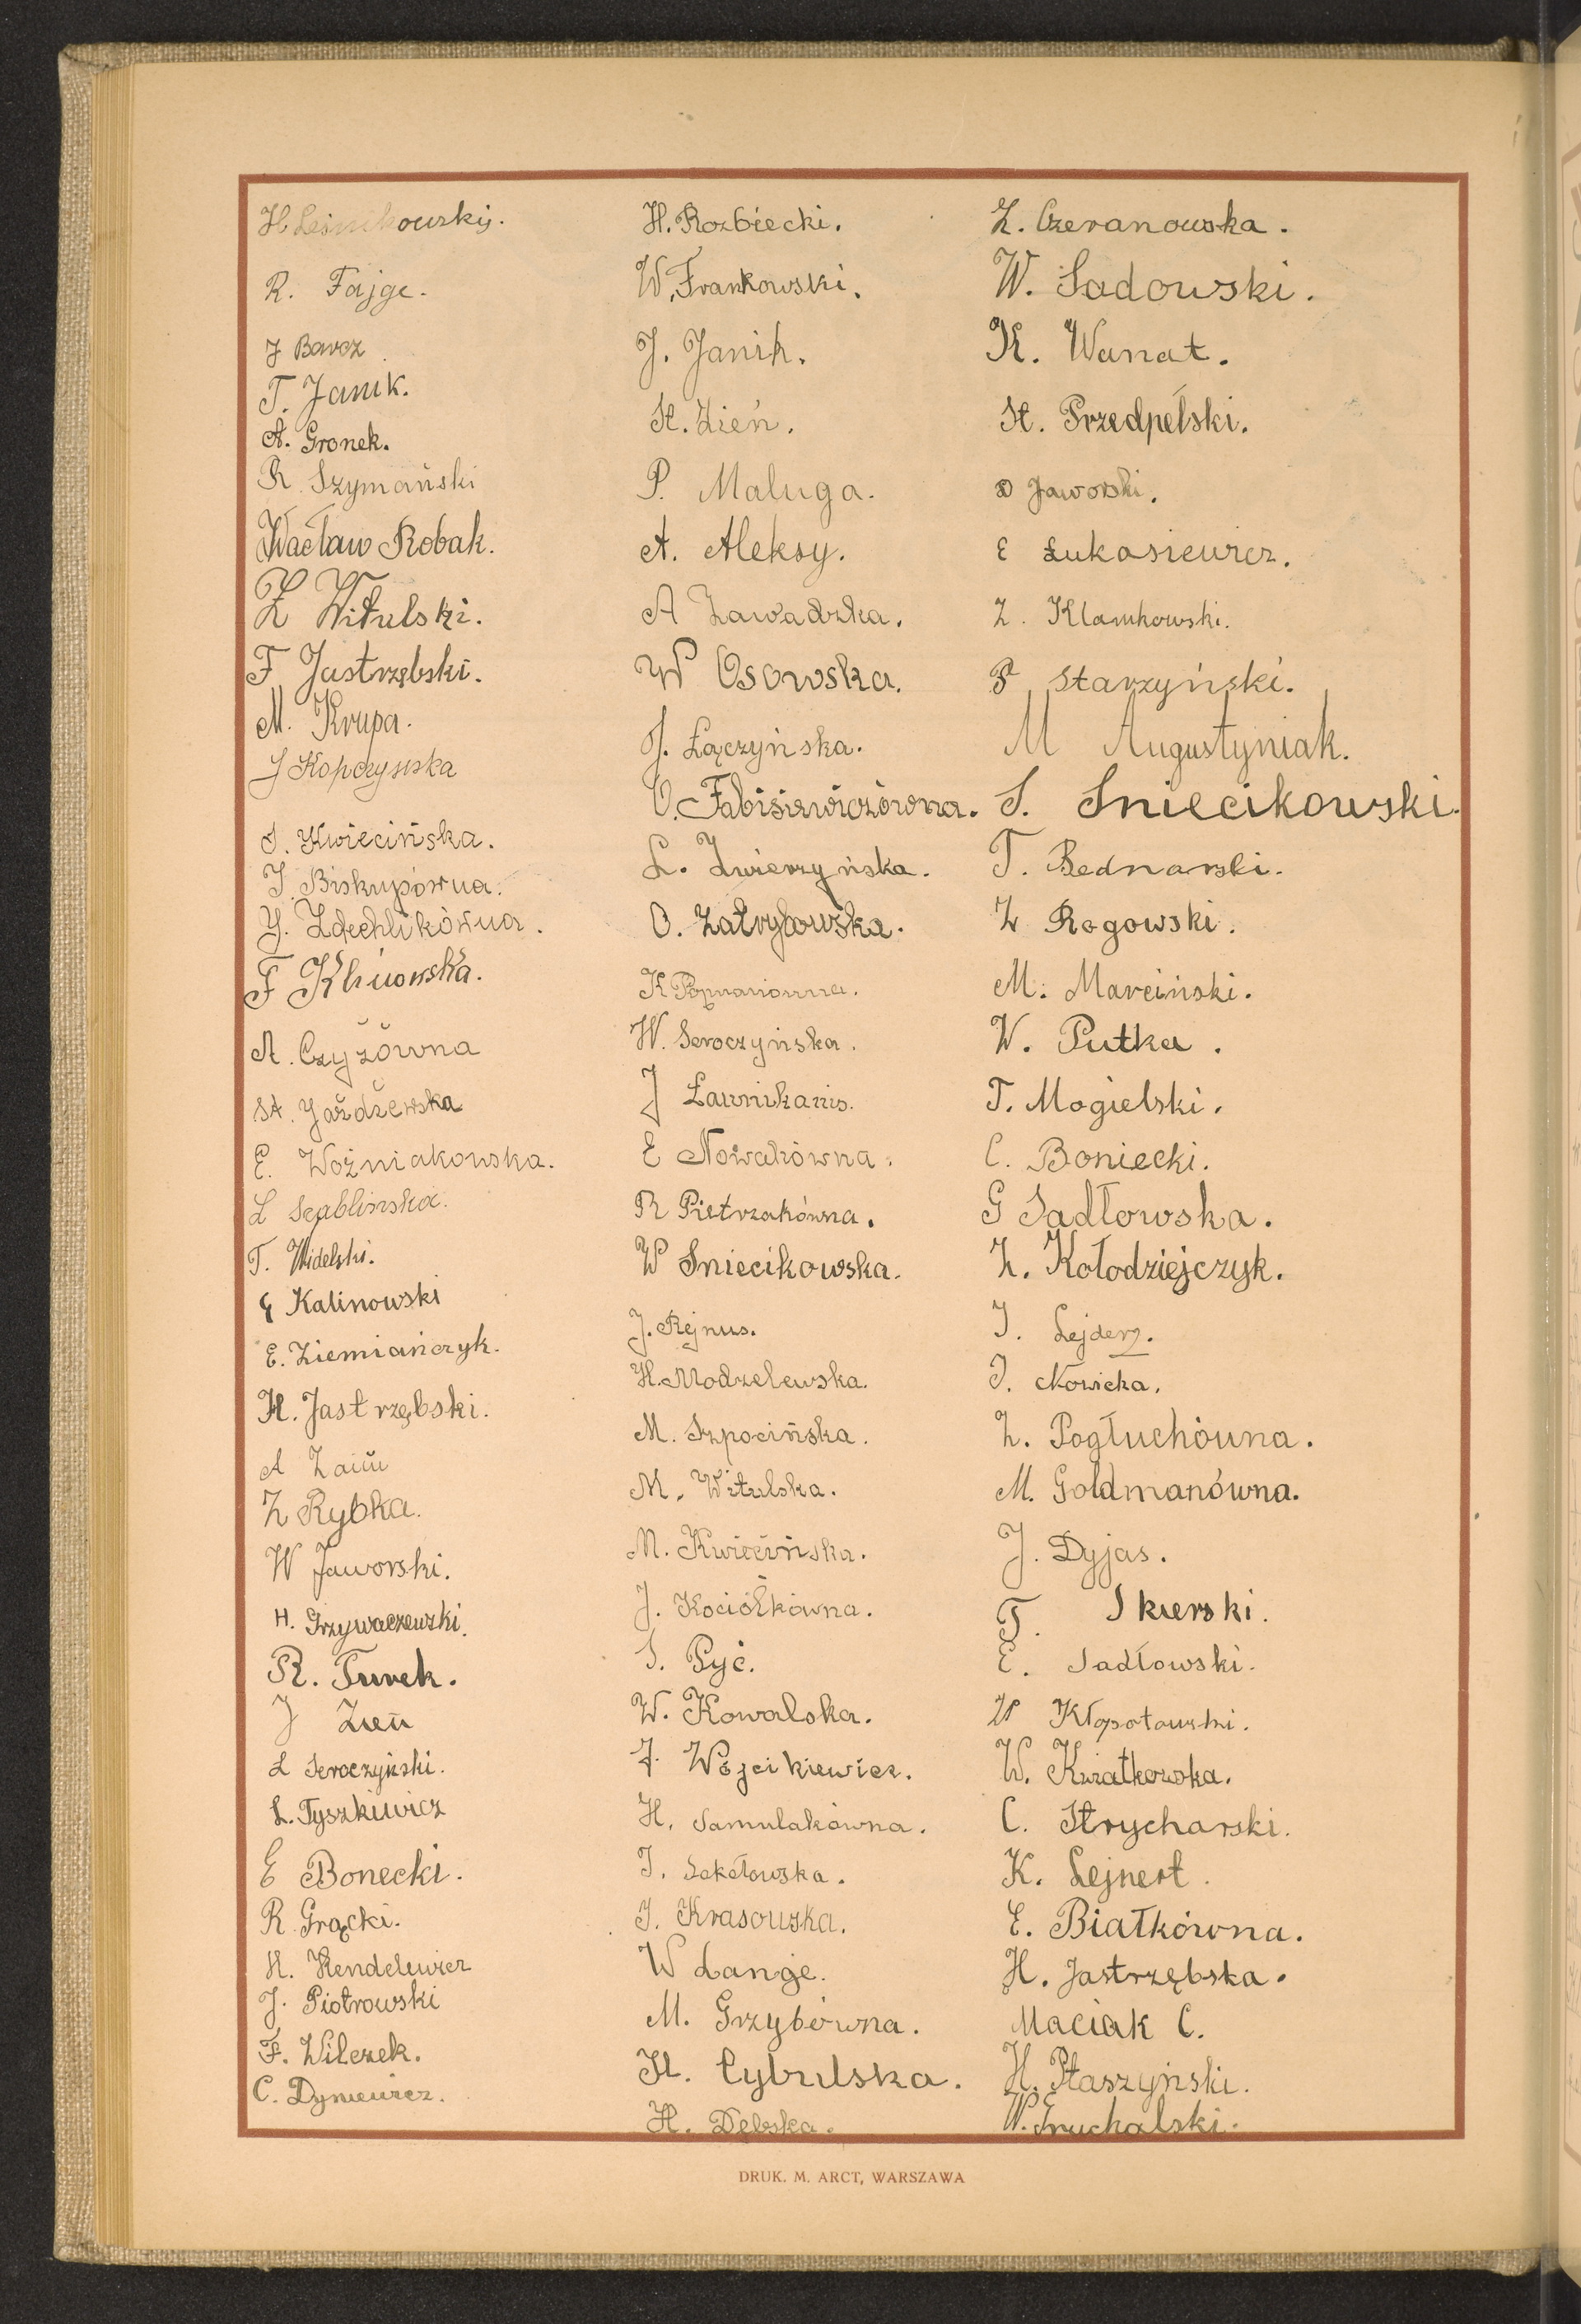 H Leśnikowski.
R. Fajge.
J Barcz
T. Janik.
A. Gronek.
R. Szymański
Wacław Robak.
Z Witulski.
F Jastrzębski.
M. Krupa.
J Kopczyńska
S. Kwiecińska.
J. Biskupówna.
Y. Zdechlikówna.
F Klinowska.
A. Czyżówna
St. Jażdżewska
E. Woźniakowska.
L Szablinska.
T. Widelski.
G Kalinowski
E. Ziemiańczyk.
H. Jastrzębski.
A
Z Rybka.
W Jaworski.
H. Grzywaczewski.
R. Turek.
J Zień
L Seroczyński.
L. Tyszkiwicz
E Bonecki.
R. Grącki.
H. Rendelewicz
J. Piotrowski
F. Wilczek.
C. Dyniewicz.
H. Rozbiecki.
W. Frankowski.
J. Janik.
St. Zień.
P. Maluga.
A. Aleksy.
A Zawadzka.
W Osowska.
J. Łączyńska.
O. Fabisiewiczówna.
L. Zwierzyńska.
O. Zatrybowska.
K
W. Seroczyńska.
J Ławnikanis.
E Nowakówna.
R Pietrzakówna.
W Sniecikowska.
J. Rejnus.
H. Modzelewska.
M. Szpocińska.
M. Witulska.
M. Kwiecińska.
J. Kociołkówna.
S. Pyć.
W. Kowalska.
J. Wójcikiewicz.
H. Samulakówna.
J. Sokołowska.
J. Krasowska.
W Lange.
M. Grzybówna.
H. Cybulska.
H. Dębska.
Z. Czeranowska.
W. Sadowski.
K. Wanat.
St. Przedpełski.
D Jaworski.
E Łukasiewicz.
Z. Klamkowski.
P Starzyński.
M Augustyniak.
S. Sniecikowski.
T. Bednarski.
Z Rogowski.
M. Marciński.
W. Putka.
T. Mogielski.
C. Boniecki.
G Sadłowska.
Z. Kołodziejczyk.
J. Lejderz.
J. Nowicka.
Z. Pogłuchówna.
M. Goldmanówna.
J. Dyjas.
T. Skierski.
E. Sadłowski.
W Kłopotowski.
W. Kwiatkowska.
C. Strycharski.
K. Lejnert.
E. Białkówna.
H. Jastrzębska.
Maciak C.
H. Ptaszyński.
W. Gruchalski.
DRUK. M. ARCT, WARSZAWA